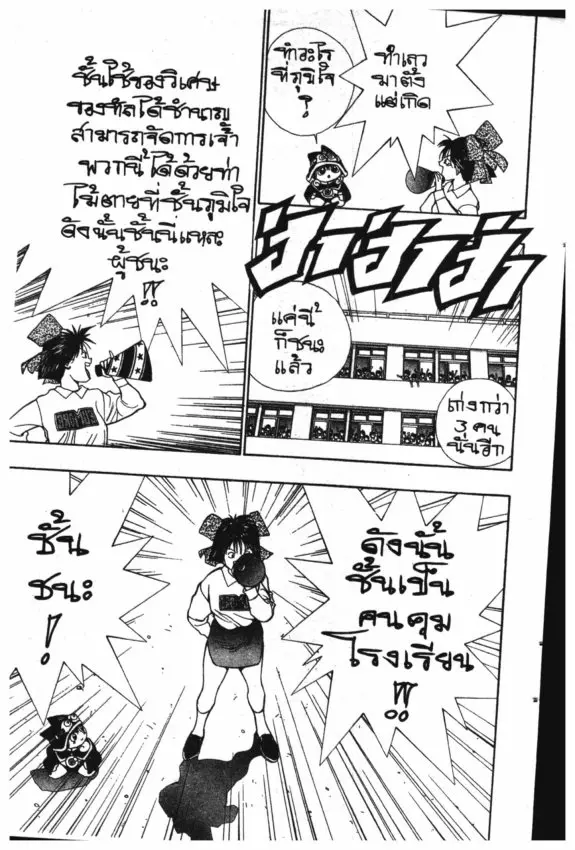 ทำเลว
มาตั้ง
แต่เกิด
ทำอะไร
ที่ภูมิใจ
?
ฮ่าฮ่าฮ่า
แค่นี้
ก็ชนะ
แล้ว
เก่งกว่า
3 คน
นั่นอีก
ชั้นใช้ของวิเศษ
ของทีลได้ชำนาญ
สามารถจัดการเจ้า
พวกนี้ได้ด้วยท่า
ไม้ตายที่ชั้นภูมิใจ
ดังนั้นชั้นนี่แหละ
ผู้ชนะ
!!
ดังนั้น
ชั้นเป็น
คนคุม
โรงเรียน
!!
ชั้น
ชนะ
!